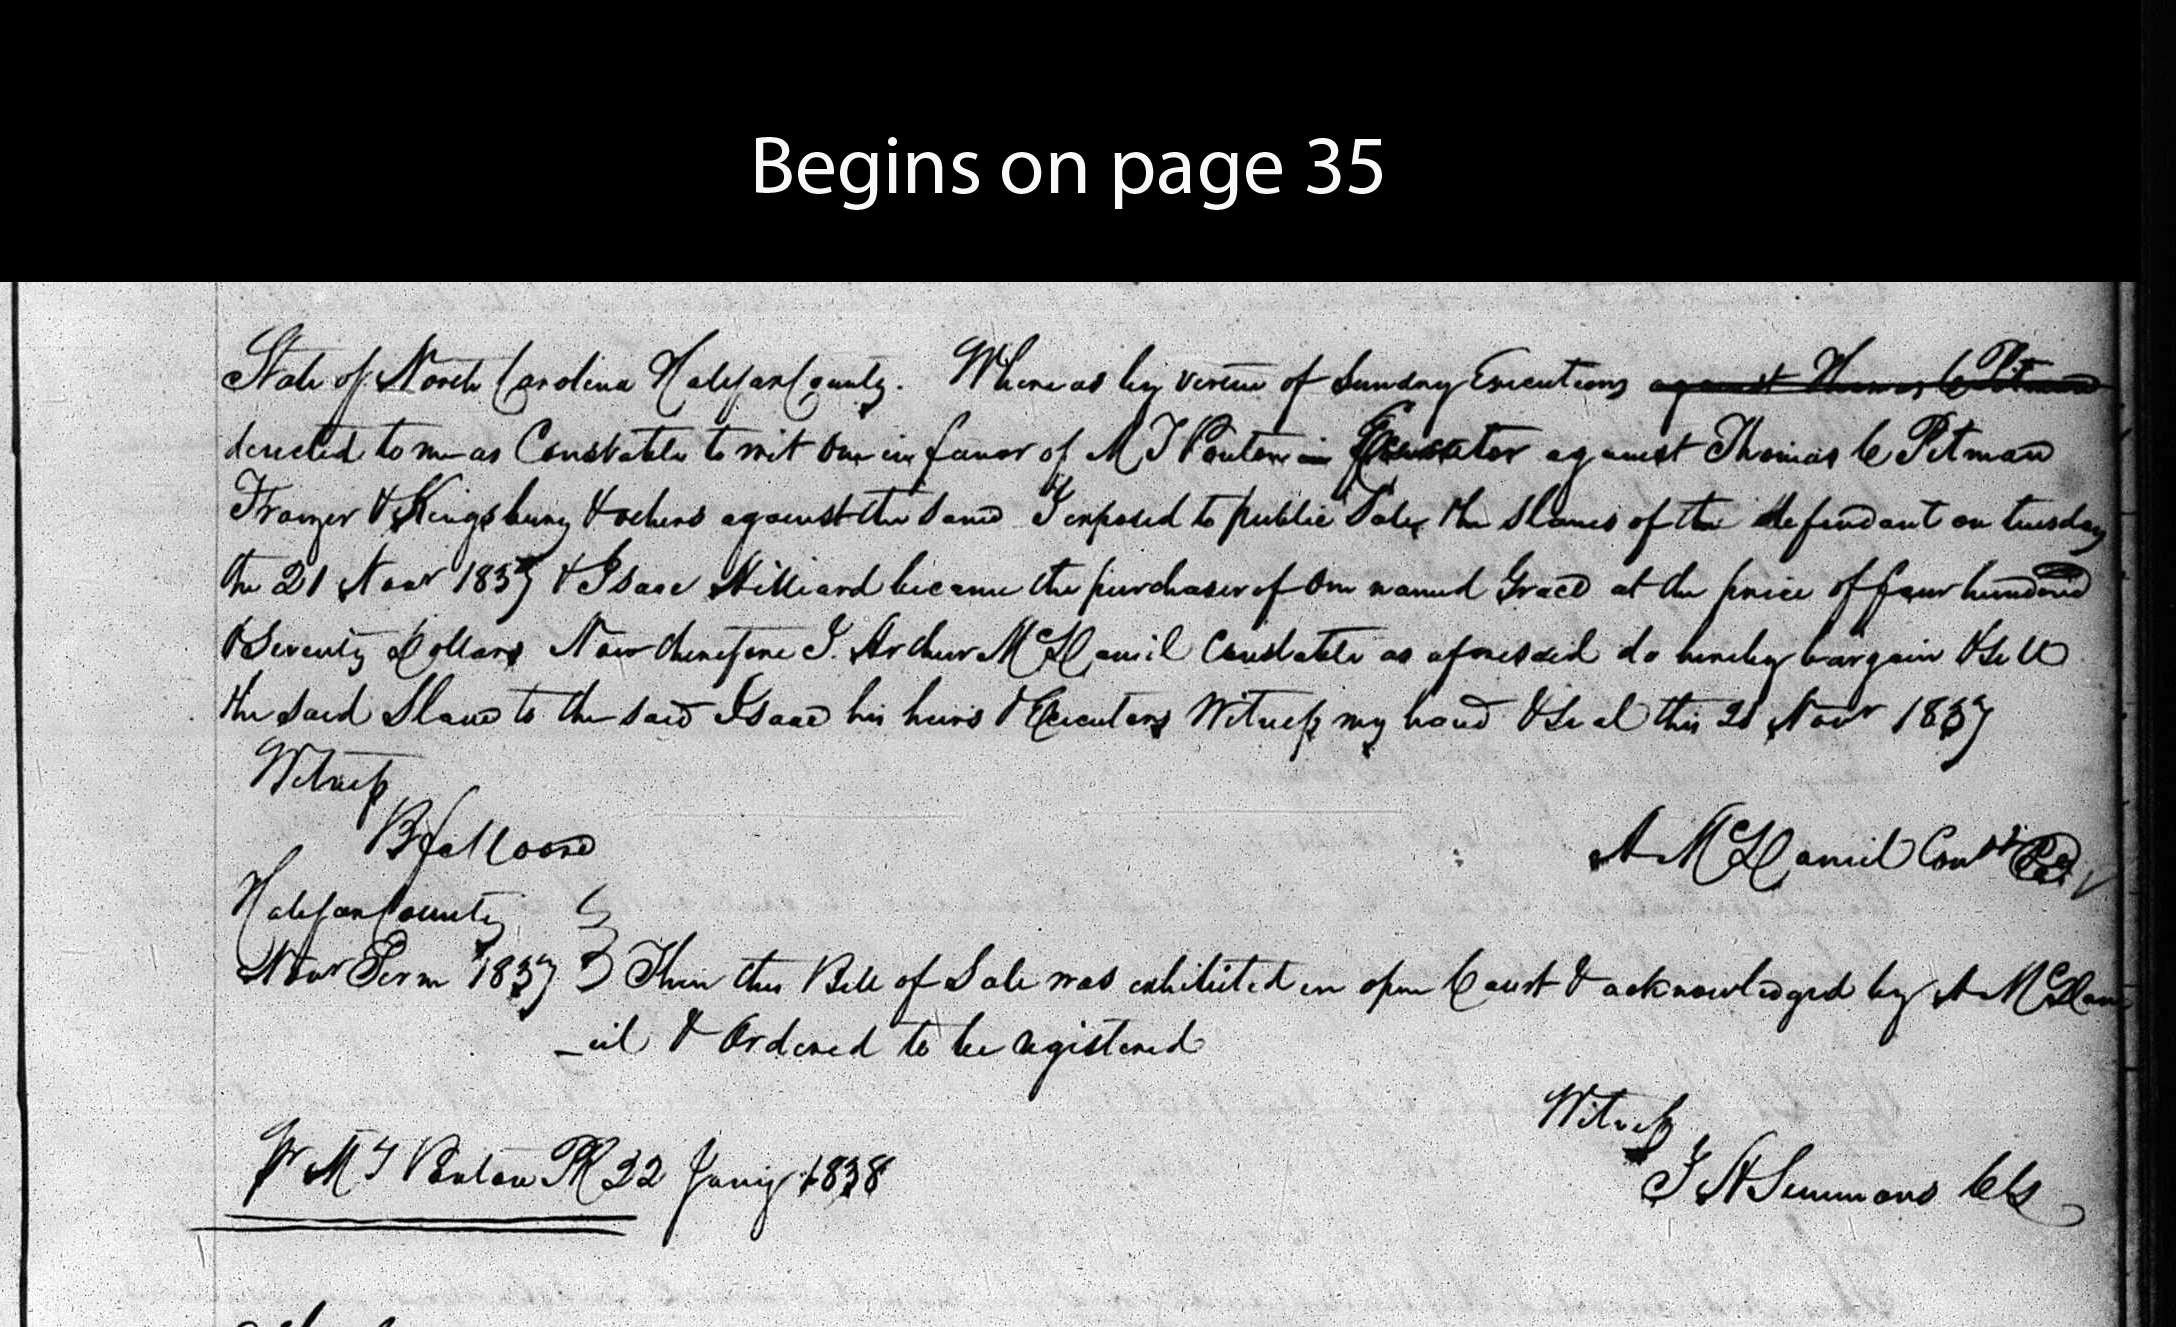 Begins on page 35
State of North Carolina Halifax County. Where as by virtue of Sundry Executions against Thomas C Pitman
derected to me as Constable to wit One in favor of M T Ponton Executor against Thomas C Pitman
Frazer & Kingsbury & others against the Same I exposed to public Sale the Slaves of the defendant on tuesday
the 21 Novr 1837 & Isaac Hilliard became the purchaser of One named Grace at the price of four hundred
& Seventy Dollars Now therefore I. Archer McDaniel Constable as aforesaid do hereby bargain & Sell
the said Slave to the said Isaac his heirs & Executors Witness my hand & Seal this 21 Novr 1837
Witness
B F Moore
A McDaniel Const
Halifax County
Novr Term 1837 } Then this Bill of Sale was exhibited in open Court & acknowledged by A McDan
_iel & Ordered to be registered
Witness
J H Simmons Clk
pr M T Ponton PR 22 Jany 1838